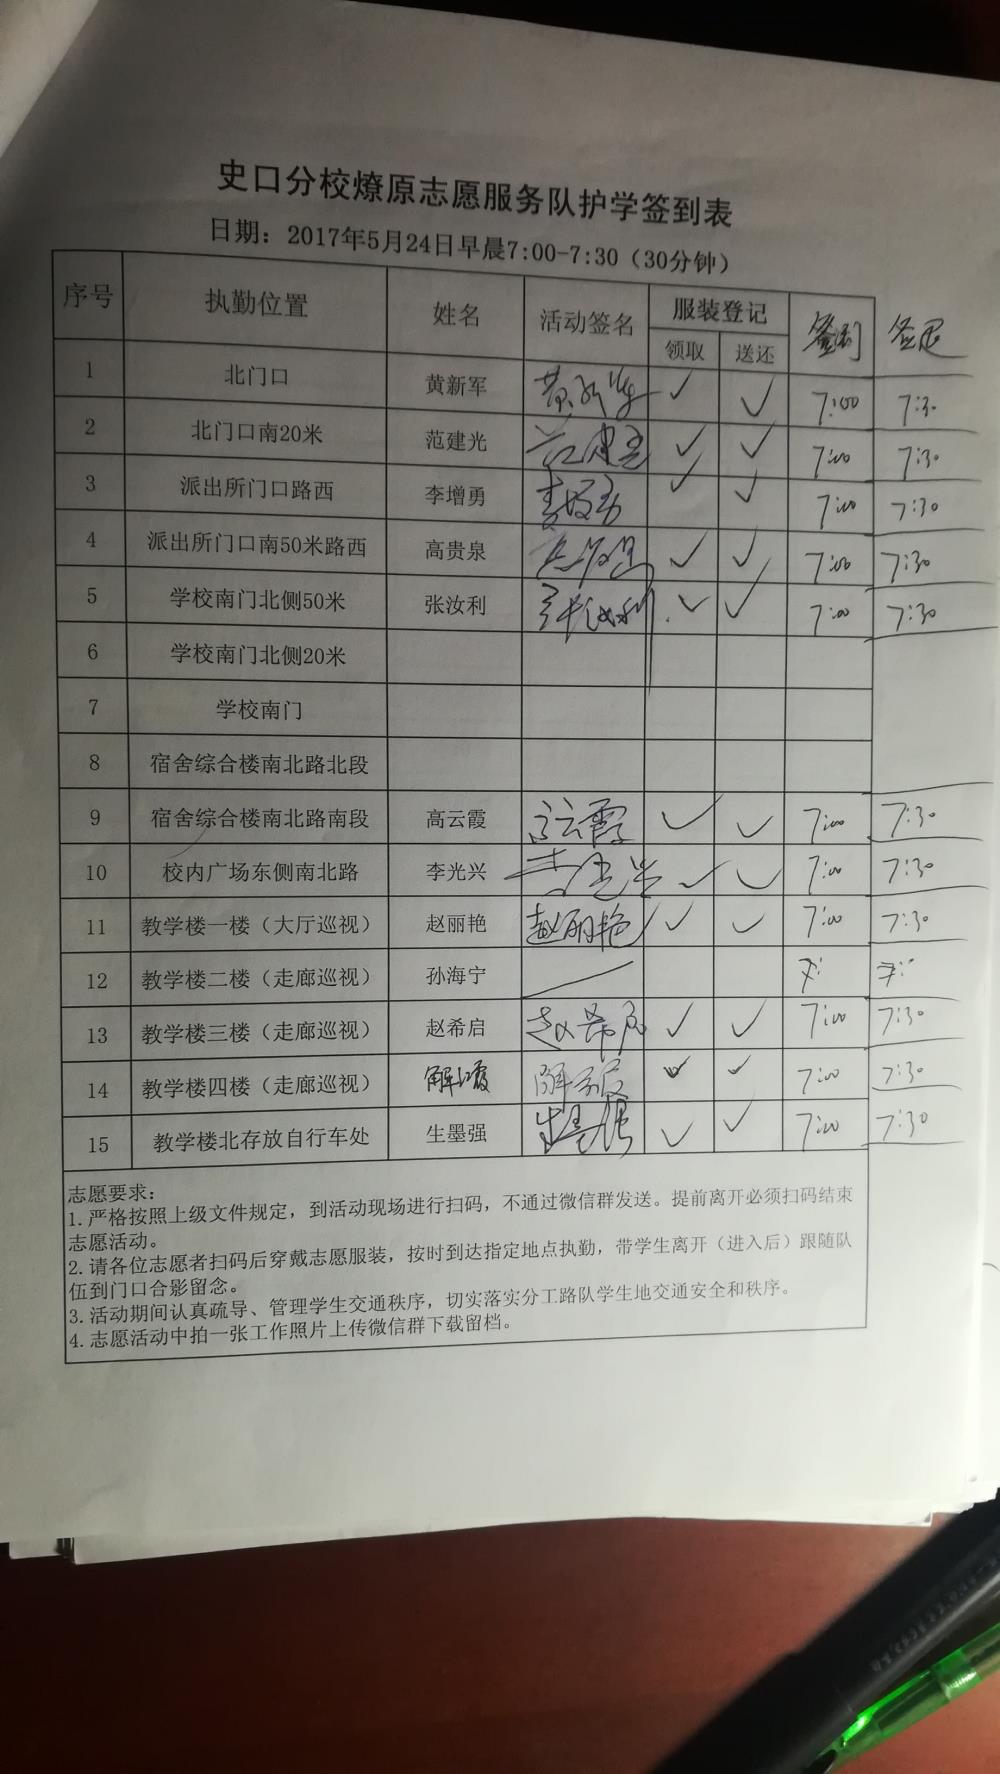 史口分校燎原志愿服务队护学签到表
日期：2017年5月24日早晨7:00-7:30（30分钟）
序号 执勤位置 姓名 活动签名 服装登记 签到 签退
领取 送还
1 北门口 黄新军 黄新军 ✓ ✓ 7:00 7:30
2 北门口南20米 范建光 范建光 ✓ ✓ 7:00 7:30
3 派出所门口路西 李增勇 李增勇 ✓ ✓ 7:00 7:30
4 派出所门口南50米路西 高贵泉 高贵泉 ✓ ✓ 7:00 7:30
5 学校南门北侧50米 张汝利 张汝利 ✓ ✓ 7:00 7:30
6 学校南门北侧20米
7 学校南门
8 宿舍综合楼南北路北段
9 宿舍综合楼南北路南段 高云霞 高云霞 ✓ ✓ 7:00 7:30
10 校内广场东侧南北路 李光兴 李光兴 ✓ ✓ 7:00 7:30
11 教学楼一楼（大厅巡视） 赵丽艳 赵丽艳 ✓ ✓ 7:00 7:30
12 教学楼二楼（走廊巡视） 孙海宁
13 教学楼三楼（走廊巡视） 赵希启 赵希启 ✓ ✓ 7:00 7:30
14 教学楼四楼（走廊巡视） ✓ ✓ 7:00 7:30
15 教学楼北存放自行车处 生墨强 生墨强 ✓ ✓ 7:00 7:30
志愿要求：
1.严格按照上级文件规定，到活动现场进行扫码，不通过微信群发送。提前离开必须扫码结束
志愿活动。
2.请各位志愿者扫码后穿戴志愿服装，按时到达指定地点执勤，带学生离开（进入后）跟随队
伍到门口合影留念。
3.活动期间认真疏导、管理学生交通秩序，切实落实分工路队学生地交通安全和秩序。
4.志愿活动中拍一张工作照片上传微信群下载留档。